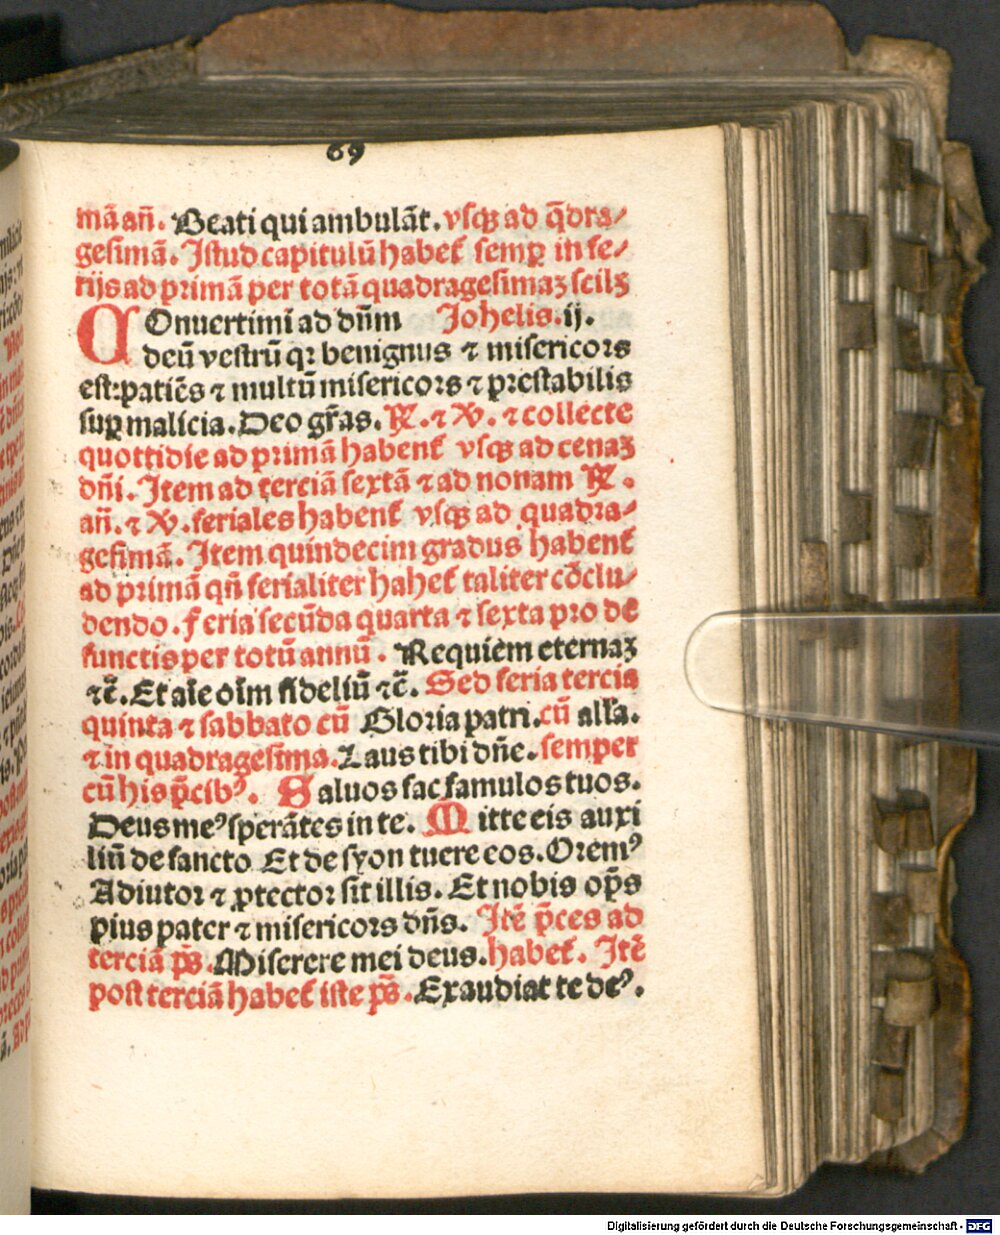 69
mā añ. Beati qui ambulāt. vsqꝫ ad q̄dra⸗
gesimā. Istud capitulū habet᷑ semꝑ in fe⸗
rijs ad primā per totā quadragesimaꝫ scilꝫ
COnuertimī ad dn̄m Johelis. ij.
deū vestrū qꝛ benignus ⁊ misericors
est: patiēs ⁊ multū misericors ⁊ prestabilis
suꝑ malicia. Deo gr̄as. ℟. ⁊ ℣. ⁊ collecte
quottidie ad primā habent᷑ vsqꝫ ad cenaꝫ
dn̄i. Item ad terciā sextā ⁊ ad nonam ℟.
añ. ⁊ ℣. feriales habent᷑ vsqꝫ ad quadra⸗
gesimā. Item quindecim gradus habent᷑
ad primā qn̄ ferialiter hahet᷑ taliter cōclu⸗
dendo. feria secūda quarta ⁊ sexta pro de
functis per totū annū. Requiem eternaꝫ
⁊c̄. Et aīe oīm fideliū ⁊c̄. Sed feria tercia
quinta ⁊ sabbato cū Gloria patri. cū alľa.
⁊ in quadragesima. Laus tibi dn̄e. semper
cū his p̄cibꝰ. Saluos fac famulos tuos.
Deus meꝰ sperātes in te. Mitte eis auxi
liū de sancto Et de syon tuere eos. Oremꝰ
Adiutor ⁊ ꝓtector sit illis. Et nobis op̄s
pius pater ⁊ misericors dn̄s. Itē p̄ces ad
terciā p̄s. Miserere mei deus. habet᷑. Itē
post terciā habet᷑ iste p̄s. Exaudiat te deꝰ.
Digitalisierung gefördert durch die Deutsche Forschungsgemeinschaft - DFG